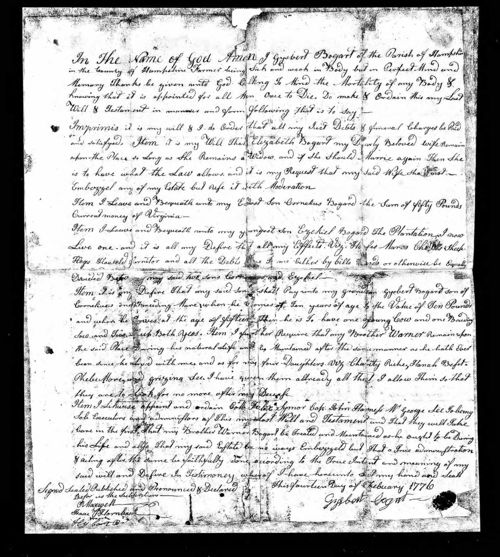 In The Name of God Amen I Gysbert Bogart of the Parish of Hampshire
in the County of Hampshire Farmer being Sick and weak in Body but in Perfect Mind and
Memory Thanks be given unto God Calling To Mind the Mortality of my Body &
Knowing that it is appointed for all Men Once to Die Do make & Ordain this my Last
Will & Testament in manner and form following That is to Say
Imprimis it is my will & I do Order that all my Just Debts & funeral Charges be Paid
and satisfied. Item it is my Will That Elizabeth Bogard my Dearly Beloved Wife Remain
upon the Place so Long as She Remains a Widow, and if She Should Marrie again Then She
is to have what the Law allows and it is my Request that my said Wife
Embezzel any of my Estate but use it with Moderation
Item I Leave and Bequeath unto my Eldest Son Cornelus Bogard the Sum of fifty Pounds
Current money of Virginia
Item I Leave and Bequeath unto my youngest son Ezekiel Bogard The Plantation I now
Live one and it is all my Desire that all my Effects Viz. Horses Mares Sheep
Hogs Household furniter and all the Debts by bills or otherwise be Equaly
Devided my said two sons and Ezekiel
Item it is my Desire That my said sons shall Pay unto my Gysbert Bogard son of
Cornelius a Breeding Mare when he comes of ten years of age & the Value of Ten Pounds
and when he the age of fifteen Then he is to have one young Cow and one Breeding
Sow and Two Both Item I Require that my Brother Warner Remain upon
the said Place During his natural Life and be Mentained after the same manner as he hath Ever
been since he lived with me and as for my four Daughters Viz Charity Hanah
Phebe and I have given them allready all that I allow Them so that
they are to Look for no more after my Decease
Item I Likewise appoint and ordain Capt. John Mr. George See
Sole Executors and administrators of This my Last Will and Testament and That they will Take
Care in the first That my Brother Warner Bogard be Treated and Mentained as he ought to be During
his Life and allso That my said Estate be no ways Embezzeld but That a True administration
acting after the same be faithfully Done according to the True Intent and meaning of my
said will and Desire In Testimoney whereof I have hereunto Set my hand and Seall
This fourteen Day of Febuary 1776
Signed Sealed Published and Pronounced & Declared
Before us the Subscribers
Gysbert Bogart